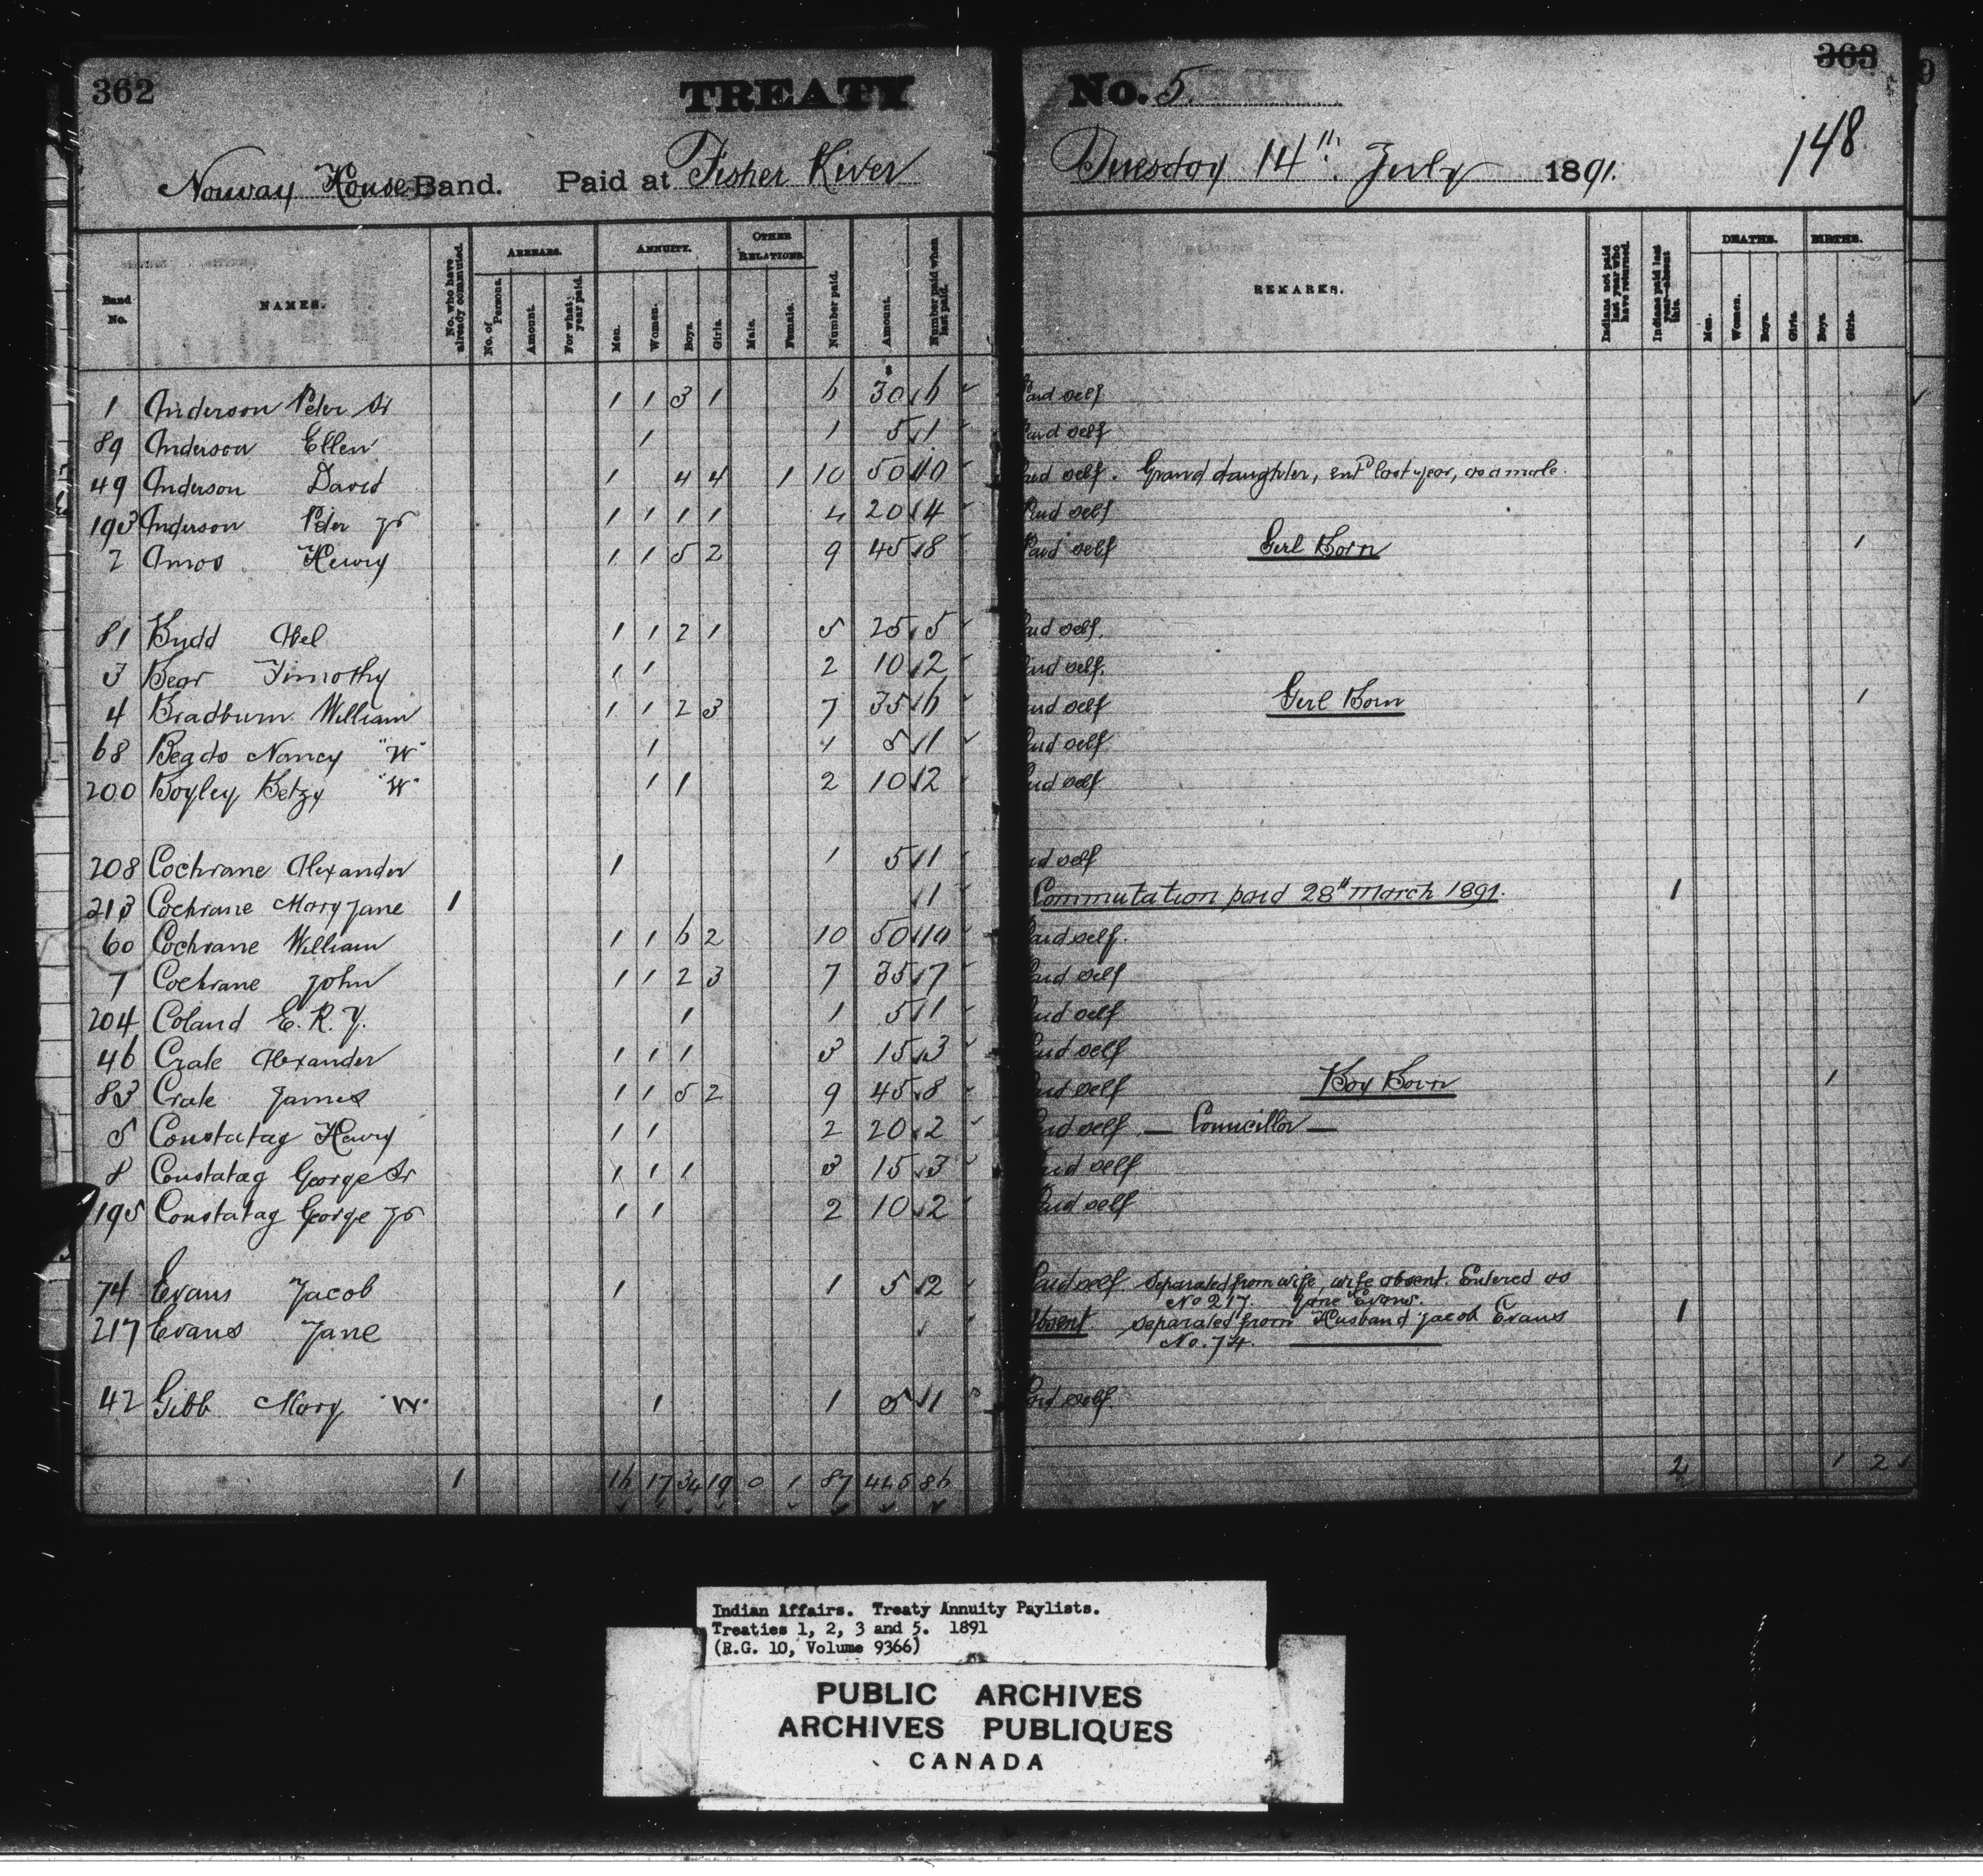 362
TREATY
No. 5.
363
148
Norway House Band. Paid at Fisher River
Tuesday 14th July 1891.
Band No. NAMES. No. who have already commuted. ARREARS. No. of Persons. Amount. For what year paid. ANNUITY. Men. Women. Boys. Girls. OTHER RELATIONS. Male. Female. Number paid. Amount. Number paid when last paid.
REMARKS. Indians not paid last year who have returned. Indians paid last year—absent this. DEATHS. Men. Women. Boys. Girls. BIRTHS. Boys. Girls.
1 Anderson Peter Sr 1 1 3 1 6 30 6 Paid self
89 Anderson Ellen 1 1 5 1 Paid self
49 Anderson David 1 4 4 1 10 50 10 Paid self. Grand daughter, entd last year, as a male.
193 Anderson Peter Jr 1 1 1 1 4 20 4 Paid self
2 Amos Henry 1 1 5 2 9 45 8 Paid self Girl Born 1
81 Budd Abel 1 1 2 1 5 25 5 Paid self.
3 Bear Timothy 1 1 2 10 2 Paid self.
4 Bradburn William 1 1 2 3 7 35 6 Paid self Girl Born 1
68 Begdo Nancy "W" 1 1 5 1 Paid self
200 Boyley Betzy "W" 1 1 2 10 2 Paid self
208 Cochrane Alexander 1 1 5 1 Paid self
213 Cochrane Mary Jane 1 1 Commutation paid 28th March 1891. 1
60 Cochrane William 1 1 6 2 10 50 10 Paid self.
7 Cochrane John 1 1 2 3 7 35 7 Paid self
204 Coland E. R. Y. 1 1 5 1 Paid self
46 Crate Alexander 1 1 1 3 15 3 Paid self
83 Crate James 1 1 5 2 9 45 8 Paid self Boy Born 1
5 Constatag Henry 1 1 2 20 2 Paid self — Councillor —
8 Constatag George Sr 1 1 1 3 15 3 Paid self
195 Constatag George Jr 1 1 2 10 2 Paid self
74 Evans Jacob 1 1 5 2 Paid self Separated from wife, wife absent. Entered as
No 217. Jane Evans.
217 Evans Jane Absent Separated from Husband Jacob Evans 1
No. 74.
42 Gibb Mary "W" 1 1 5 1 Paid self.
1 16 17 34 19 0 1 87 445 86 2 1 2
Indian Affairs. Treaty Annuity Paylists.
Treaties 1, 2, 3 and 5. 1891
(R.G. 10, Volume 9366)
PUBLIC ARCHIVES
ARCHIVES PUBLIQUES
CANADA